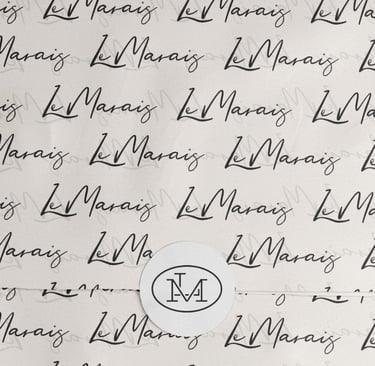 Le Marais Le Marais Le
Marais Le Marais Le Marais
Le Marais Le Marais Le
Marais Le Marais Le Marais
Le Marais Le Marais Le
Marais Le Ma Le Marais
LM
Marais Le Marais Le Marais